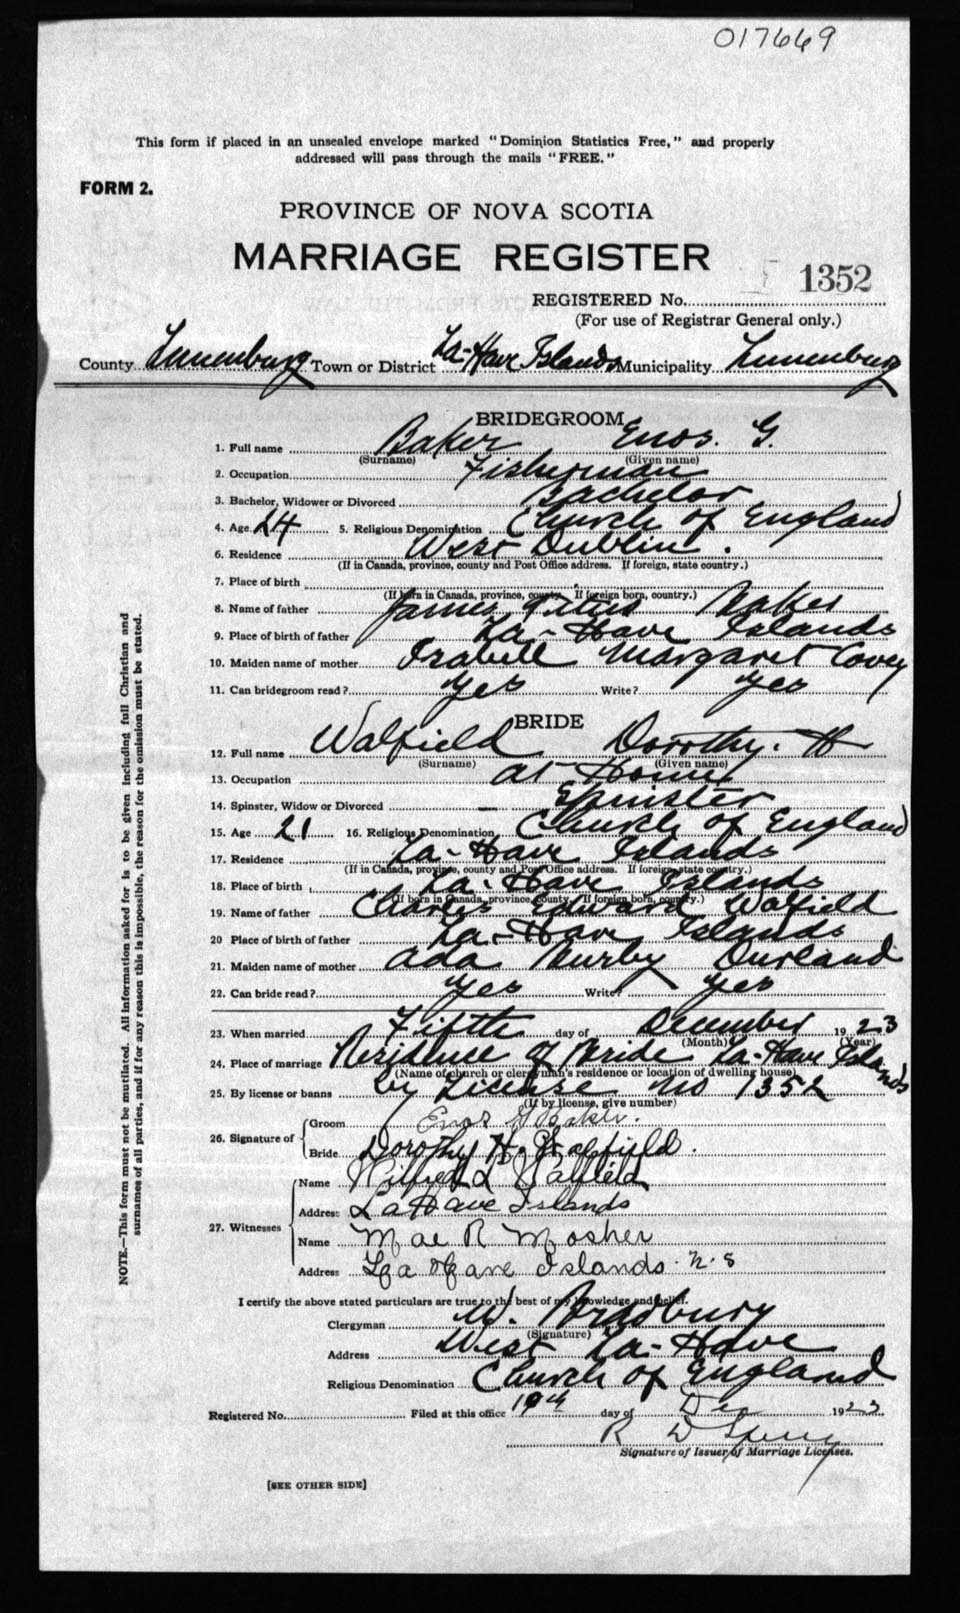 017669
This form if placed in an unsealed envelope marked "Dominion Statistics Free," and properly
addressed will pass through the mails "FREE."
FORM 2.
PROVINCE OF NOVA SCOTIA
MARRIAGE REGISTER
1352
REGISTERED No.
(For use of Registrar General only.)
County Lunenburg Town or District La-Have Islands Municipality Lunenburg
BRIDEGROOM
1. Full name Baker Enos. G.
(Surname) (Given name)
2. Occupation Fisherman
3. Bachelor, Widower or Divorced Bachelor
4. Age 24 5. Religious Denomination Church of England
6. Residence West Dublin.
(If in Canada, province, county and Post Office address. If foreign, state country.)
7. Place of birth
(If born in Canada, province, county. If foreign born, country.)
8. Name of father James Titus Baker
9. Place of birth of father La-Have Islands
10. Maiden name of mother Isabell Margaret Covey
11. Can bridegroom read? Yes Write? Yes
BRIDE
12. Full name Walfield Dorothy. H
(Surname) (Given name)
13. Occupation at Home
14. Spinster, Widow or Divorced - Spinster
15. Age 21 16. Religious Denomination Church of England
17. Residence La-Have Islands
(If in Canada, province, county and Post Office address. If foreign, state country.)
18. Place of birth La-Have Islands
(If born in Canada, province, county. If foreign born, country.)
19. Name of father Charles Edward Walfield
20 Place of birth of father La-Have Islands
21. Maiden name of mother Ada Durland
22. Can bride read? Yes Write? Yes
23. When married Fifth day of December 1923
(Month) (Year)
24. Place of marriage Residence of Bride La-Have Islands
(Name of church or clergyman's residence or location of dwelling house)
25. By license or banns by License No 1352
(If by license, give number)
26. Signature of Groom Enos G Baker.
Bride Dorothy H. Walfield.
27. Witnesses Name Wilfred L Walfield
Address La Have Islands
Name Mae R Mosher
Address La Have Islands N.S
I certify the above stated particulars are true to the best of my knowledge and belief.
Clergyman W. Bradbury
(Signature)
Address West La-Have
Religious Denomination Church of England
Registered No. Filed at this office 19th day of Dec 1923
R D Sperry
Signature of Issuer of Marriage Licenses.
[SEE OTHER SIDE]
NOTE.—This form must not be mutilated. All information asked for is to be given including full Christian and
surnames of all parties, and if for any reason this is impossible, the reason for the omission must be stated.